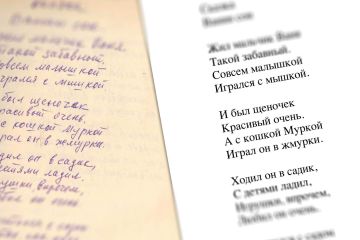 такой забавный.
совсем малышкой
игрался с мышкой.
был щеночек
красивый очень.
с кошкой Муркой
играл он в жмурки.
он в садик,
ладил.
Сказка
Ванин сон
Жил мальчик Ваня
Такой забавный.
Совсем малышкой
Игрался с мышкой.
И был щеночек
Красивый очень.
А с кошкой Муркой
Играл он в жмурки.
Ходил он в садик,
С детями ладил,
Игрушки, впрочем,
Любил он очень.